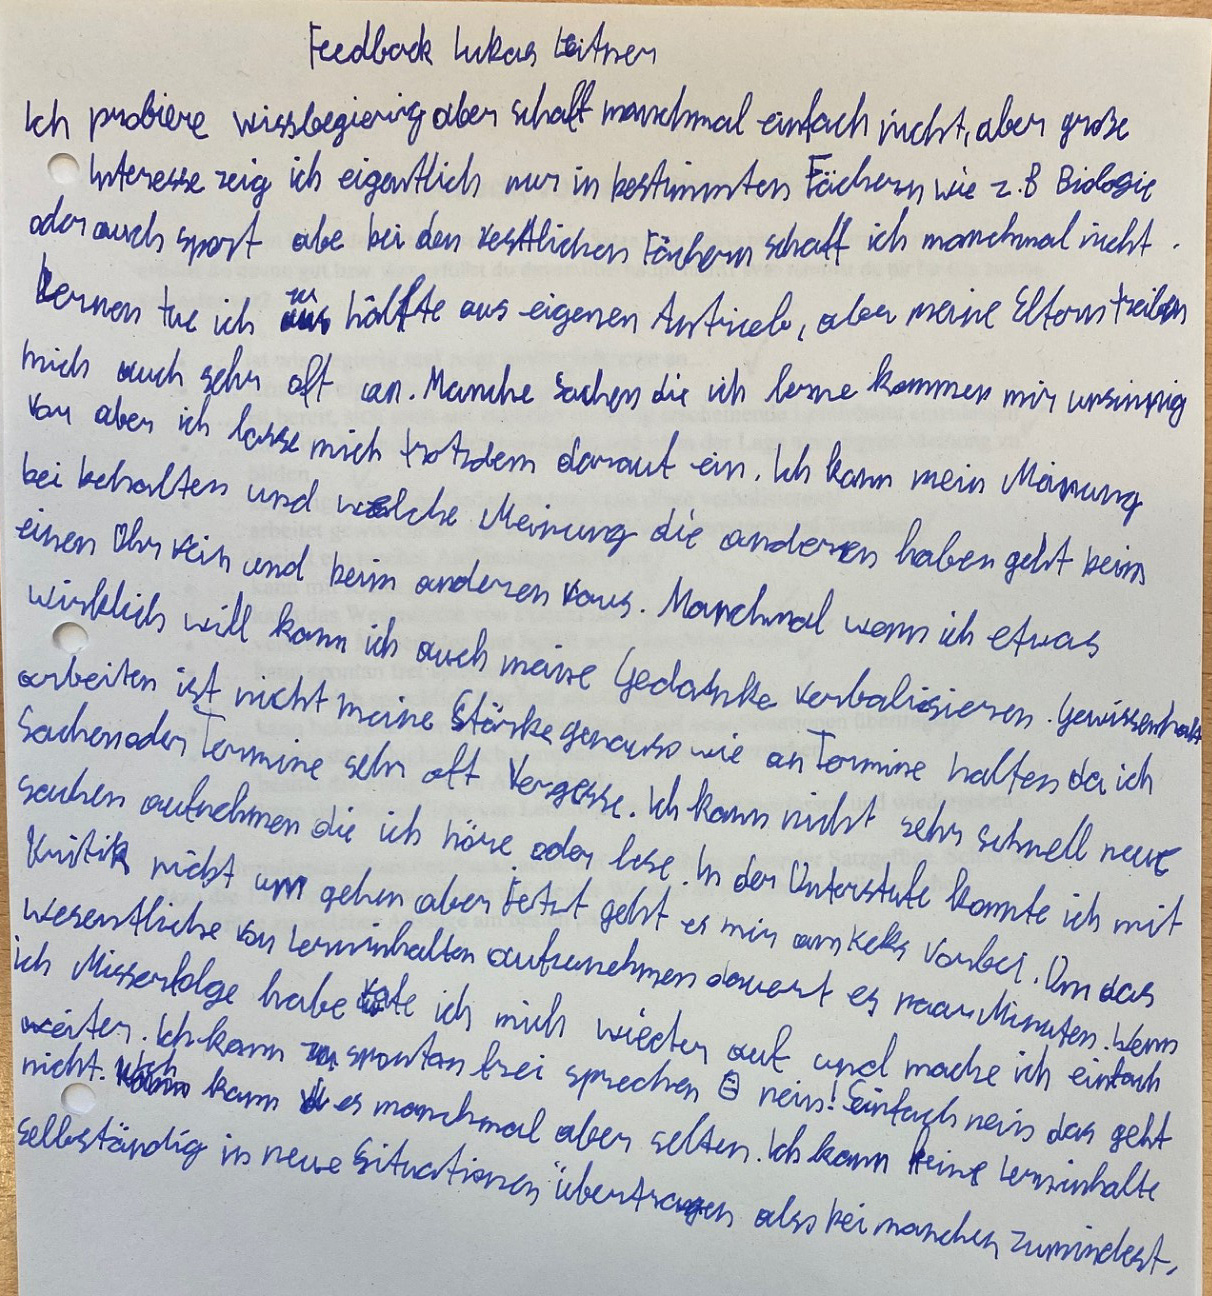 Feedback Lukas Leitner
Ich probiere wissbegierig aber schaff manchmal einfach nicht, aber große
Interesse zeig ich eigentlich nur in bestimmten Fächern wie z.B Biologie
oder auch sport abe bei den restlichen Fächern schaff ich manchmal nicht.
Lernen tue ich zu hälfte aus eigenen Antrieb, aber meine Eltern treiben
mich auch sehr oft an. Manche Sachen die ich lerne kommen mir unsinnig
vor aber ich lasse mich trotzdem darauf ein. Ich kann mein Meinung
bei behalten und welche Meinung die anderen haben geht beim
einen Ohr rein und beim anderen raus. Manchmal wenn ich etwas
wirklich will kann ich auch meine Gedanke verbalisieren. Gewissenhaft
arbeiten ist nicht meine Stärke genauso wie an Termine halten da ich
Sachen oder Termine sehr oft Vergesse. Ich kann nicht sehr schnell neue
sachen aufnehmen die ich höre oder lese. In der Unterstufe konnte ich mit
Kritik nicht um gehen aber jetzt geht es mir am Keks vorbei. Um das
wesentliche von Lerninhalten aufzunehmen dauert es paar Minuten. Wenn
ich Misserfolge habe ich mich wieder auf und mache ich einfach
weiter. Ich kann spontan frei sprechen nein! Einfach nein das geht
nicht. Ich kann es manchmal aber selten. Ich kann keine Lerninhalte
selbständig in neue Situationen übertragen also bei manchen zumindest.